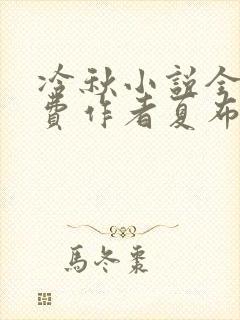 冷秋小说全
费作者夏布
馬冬棗